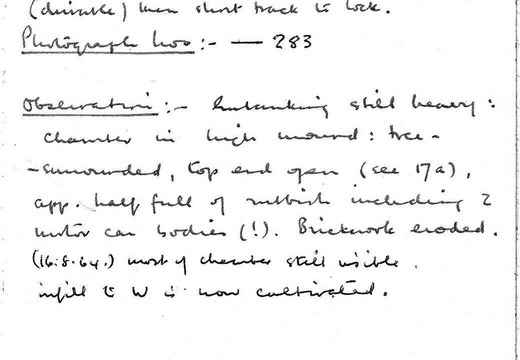 (drivable) then short track to lock.
Photograph nos :- — 283
Observation :- Embanking still heavy :
chamber in high mound : tree-
-surrounded, top end open (see 17a),
app. half full of rubbish including 2
motor car bodies (!). Brickwork eroded.
(16.8.64.) most of chamber still visible.
infill to W is now cultivated.